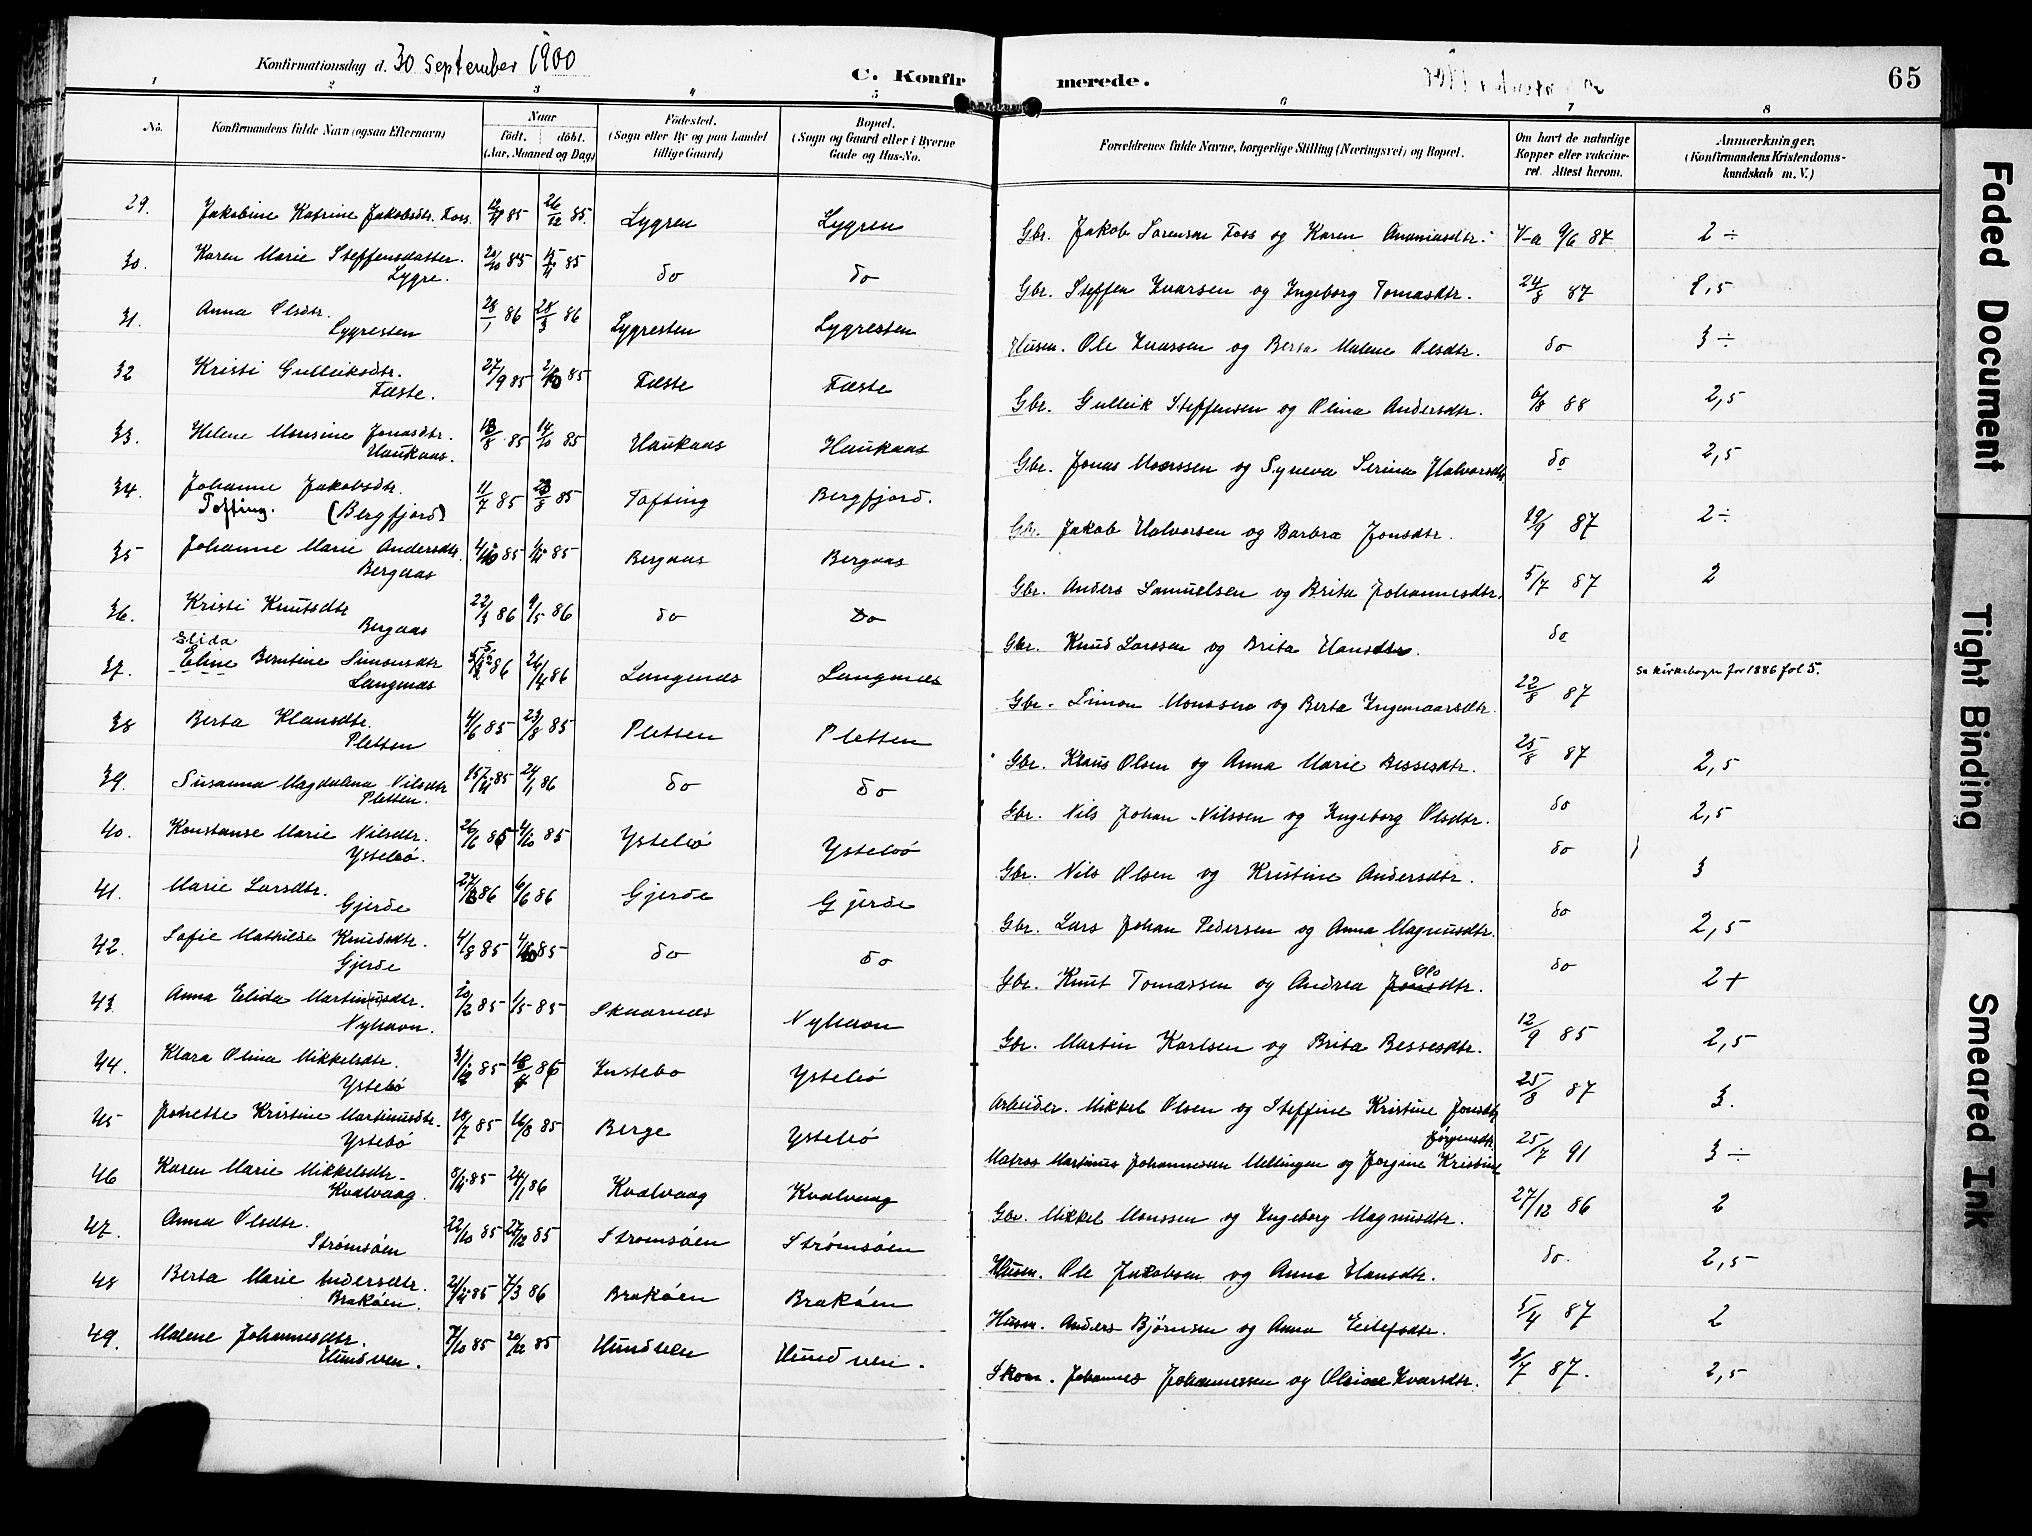 Konfirmationsdag d. 30 September 1900
C. Konfirmerede.
65
1 2 3 4 5 6 7 8
No. Konfirmandens fulde Navn (ogsaa Efternavn) Naar født. døbt. (Aar, Maaned og Dag) Fødested. (Sogn eller By og paa Landet tillige Gaard) Bopæl. (Sogn og Gaard eller i Byerne Gade og Hus-No. Forældrenes fulde Navne, borgerlige Stilling (Næringsvei) og Bopæl. Om havt de naturlige Kopper eller vakcineret. Attest herom. Anmærkninger. (Konfirmandens Kristendomskundskab m. V.)
29. Jakobine Katrine Jakobsdtr. Foss. 85 26/12 85. Lygren Lygren Gbr. Jakob Sørensen Foss og Karen Ananiasdtr. V-a 9/6 87 2÷
30. Karen Marie Steffensdatter Lygre. 20/10 85 15/11 85 do do Gbr. Steffen Ivarsen og Ingeborg Tomasdtr. 24/8 87 2,5
31. Anna Olsdtr. Lygresten 28/1 86 28/3 86 Lygresten Lygresten Husm. Ole Ivarsen og Berta Malene Olsdtr. do 3÷
32 Kristi Gulleiksdtr. Fæste. 27/9 85 2/10 85 Fæste Fæste Gbr. Gulleik Steffensen og Olina Andersdtr. 6/8 88 2,5
33. Helene Monsine Jonasdtr. Haukaas. 18/8 85 14/10 85 Haukaas Haukaas Gbr. Jonas Monssen og Syneva Serina Halvorsdtr do 2,5
34. Johanne Jakobsdtr. Tofting. (Bergfjord) 11/7 85 23/8 85 Tofting Bergfjord. Gbr. Jakob Halvorsen og Barbra Jonsdtr. 29/9 87 2÷
35 Johanne Marie Andersdtr. Bergaas 4/10 85 85 Bergaas Bergaas Gbr. Anders Samuelsen og Brita Johannesdtr. 5/7 87 2
36. Kristi Knutsdtr Bergaas 22/3 86 9/5 86 do Do Gbr. Knud Larssen og Brita Hansdtr. do
37. Elida Eline Berntine Simonsdtr Langenæs 86 26/4 86 Langenæs Langenæs Gbr. Simon Monssen og Berta Ingemaarsdtr. 22/8 87 Se kirkebogen for 1886 fol 5.
38 Berta Klausdtr. Pletten 4/6 85 23/8 85 Pletten Pletten Gbr. Klaus Olsen og Anna Marie Bessesdtr. 25/8 87 2,5
39. Susanna Magdalena Nilsdtr Pletten. 85 24/1 86 do do Gbr. Nils Johan Nilssen og Ingeborg Olsdtr. do 2,5
40. Konstanse Marie Nilsdtr. Ystebø. 26/6 85 4/10 85 Ystebø Ystebø Gbr. Nils Olsen og Kristine Andersdtr. do 3
41. Marie Larsdtr. Gjerde 27/3 86 6/6 86 Gjerde Gjerde Gbr. Lars Johan Pedersen og Anna Magnusdtr. do 2,5
42. Sofie Mathilde Knudsdtr. Gjerde 4/8 85 4/10 85 do do Gbr. Knut Tomassen og Andrea Jonsdtr. Ols do 2+
43. Anna Elida Martinusdtr. Nyhavn. 20/2 85 1/5 85 Skaarnæs Nyhavn Gbr. Martin Karlsen og Brita Bessesdtr. 12/9 85 2,5
44. Klara Olina Mikkelsdtr. Ystebø 31/12 85 18/4 86 Instebø Ystebø Arbeider. Mikkel Olsen og Steffine Kristine Jonsdtr 25/8 87 3.
45 Johette Kristine Martinusdtr. Ystebø 28/7 85 16/8 85 Berge Ystebø Matros Martinus Johannessen Mellingen og Jørgine Kristine Jørgensdtr 25/7 91 3÷
46 Karen Marie Mikkelsdtr. Kvalvaag. 8/11 85 24/1 86 Kvalvaag Kvalvaag Gbr. Mikkel Monssen og Ingeborg Magnusdtr. 27/12 86 2
47. Anna Olsdtr. Strømsøen 22/10 85 27/12 85 Strømsøen Strømsøen Husm. Ole Jakobsen og Anna Hansdtr. do. 2,5
48 Berta Marie Andersdtr. Brakøen. 21/11 85 7/3 86 Brakøen Brakøen Husm. Anders Bjørnsen og Anna Eilefsdtr. 5/4 87 2
49. Malene Johannesdtr. Hundven. 7/10 85 20/12 85 Hundven Hundven. Skom. Johannes Johannessen og Olsine Ivarsdtr. 2/7 87. 2,5
Faded Document
Tight Binding
Smeared Ink